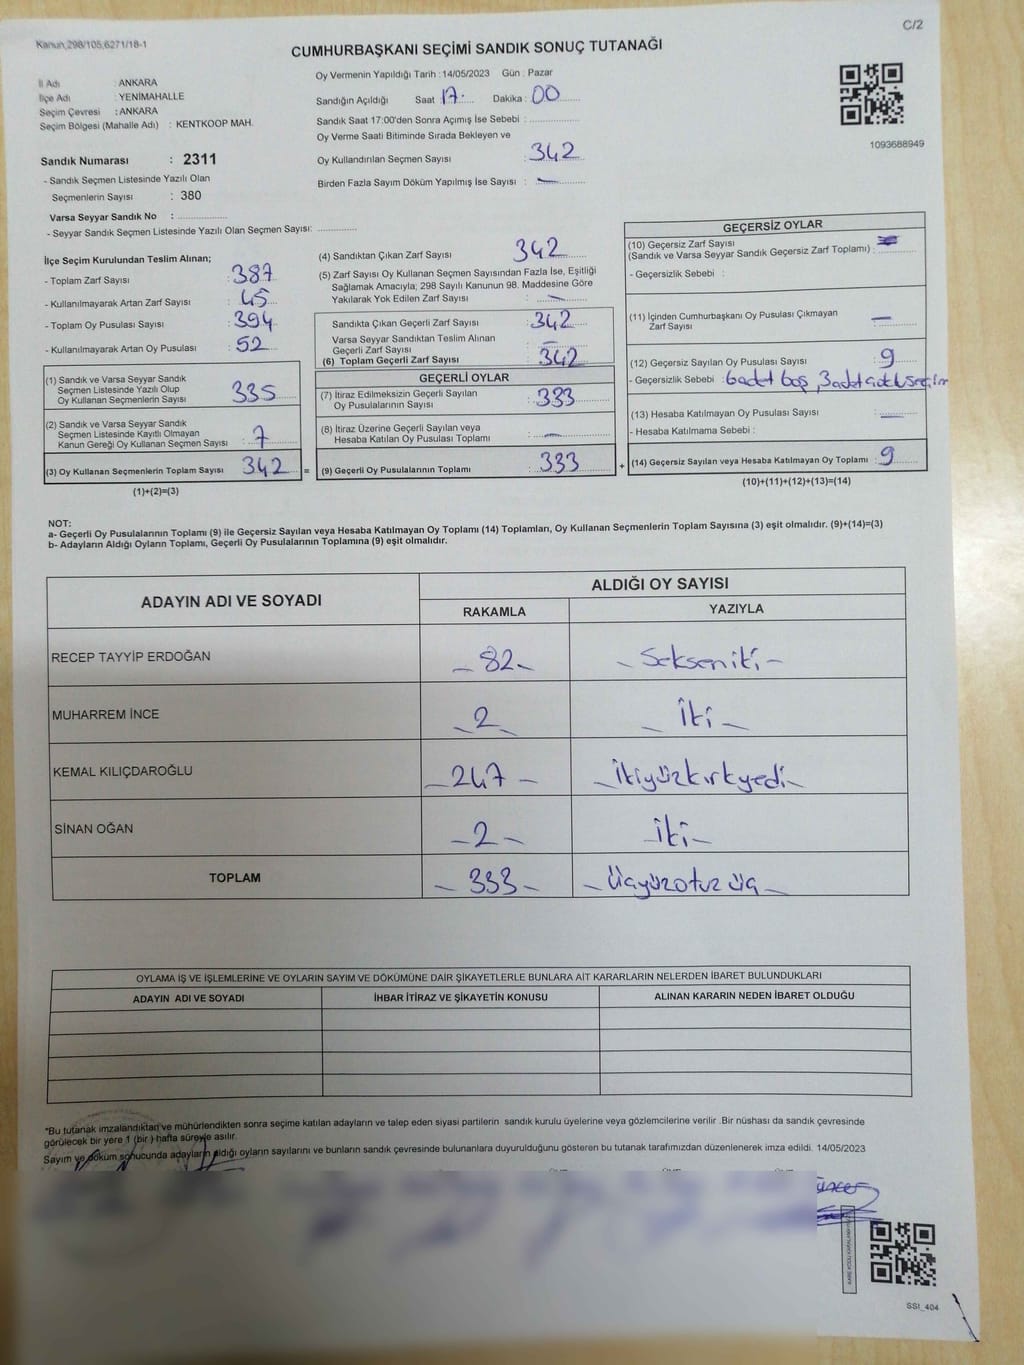 C/2
Kanun,298/105,6271/18-1
CUMHURBAŞKANI SEÇİMİ SANDIK SONUÇ TUTANAĞI
İl Adı : ANKARA
İlçe Adı : YENİMAHALLE
Seçim Çevresi : ANKARA
Seçim Bölgesi (Mahalle Adı) : KENTKOOP MAH.
Oy Vermenin Yapıldığı Tarih : 14/05/2023 Gün : Pazar
Sandığın Açıldığı Saat 17 Dakika : 00
Sandık Saat 17:00'den Sonra Açımış İse Sebebi :
Oy Verme Saati Bitiminde Sırada Bekleyen ve
Oy Kullandırılan Seçmen Sayısı : 342
Birden Fazla Sayım Döküm Yapılmış İse Sayısı : —
1093688949
Sandık Numarası : 2311
- Sandık Seçmen Listesinde Yazılı Olan
Seçmenlerin Sayısı : 380
Varsa Seyyar Sandık No :
- Seyyar Sandık Seçmen Listesinde Yazılı Olan Seçmen Sayısı:
İlçe Seçim Kurulundan Teslim Alınan;
- Toplam Zarf Sayısı : 387
- Kullanılmayarak Artan Zarf Sayısı : 45
- Toplam Oy Pusulası Sayısı : 394
- Kullanılmayarak Artan Oy Pusulası : 52
(1) Sandık ve Varsa Seyyar Sandık
Seçmen Listesinde Yazılı Olup
Oy Kullanan Seçmenlerin Sayısı : 335
(2) Sandık ve Varsa Seyyar Sandık
Seçmen Listesinde Kayıtlı Olmayan
Kanun Gereği Oy Kullanan Seçmen Sayısı : 7
(3) Oy Kullanan Seçmenlerin Toplam Sayısı 342
(1)+(2)=(3)
(4) Sandıktan Çıkan Zarf Sayısı : 342
(5) Zarf Sayısı Oy Kullanan Seçmen Sayısından Fazla İse, Eşitliği
Sağlamak Amacıyla; 298 Sayılı Kanunun 98. Maddesine Göre
Yakılarak Yok Edilen Zarf Sayısı : —
Sandıkta Çıkan Geçerli Zarf Sayısı : 342
Varsa Seyyar Sandıktan Teslim Alınan
Geçerli Zarf Sayısı : —
(6) Toplam Geçerli Zarf Sayısı : 342
GEÇERLİ OYLAR
(7) İtiraz Edilmeksizin Geçerli Sayılan
Oy Pusulalarının Sayısı : 333
(8) İtiraz Üzerine Geçerli Sayılan veya
Hesaba Katılan Oy Pusulası Toplamı : —
= (9) Geçerli Oy Pusulalarının Toplamı : 333 +
GEÇERSİZ OYLAR
(10) Geçersiz Zarf Sayısı
(Sandık ve Varsa Seyyar Sandık Geçersiz Zarf Toplamı) : —
- Geçersizlik Sebebi :
(11) İçinden Cumhurbaşkanı Oy Pusulası Çıkmayan
Zarf Sayısı : —
(12) Geçersiz Sayılan Oy Pusulası Sayısı : 9
- Geçersizlik Sebebi : 6 adet boş, 3 adet çoklu seçim
(13) Hesaba Katılmayan Oy Pusulası Sayısı : —
- Hesaba Katılmama Sebebi :
(14) Geçersiz Sayılan veya Hesaba Katılmayan Oy Toplamı : 9
(10)+(11)+(12)+(13)=(14)
NOT:
a- Geçerli Oy Pusulalarının Toplamı (9) ile Geçersiz Sayılan veya Hesaba Katılmayan Oy Toplamı (14) Toplamları, Oy Kullanan Seçmenlerin Toplam Sayısına (3) eşit olmalıdır. (9)+(14)=(3)
b- Adayların Aldığı Oyların Toplamı, Geçerli Oy Pusulalarının Toplamına (9) eşit olmalıdır.
ADAYIN ADI VE SOYADI
ALDIĞI OY SAYISI
RAKAMLA YAZIYLA
RECEP TAYYİP ERDOĞAN - 82 - - Sekseniki -
MUHARREM İNCE - 2 - - İki -
KEMAL KILIÇDAROĞLU - 247 - - İkiyüzkırkyedi -
SİNAN OĞAN - 2 - - İki -
TOPLAM - 333 - - Üçyüzotuzüç -
OYLAMA İŞ VE İŞLEMLERİNE VE OYLARIN SAYIM VE DÖKÜMÜNE DAİR ŞİKAYETLERLE BUNLARA AİT KARARLARIN NELERDEN İBARET BULUNDUKLARI
ADAYIN ADI VE SOYADI İHBAR İTİRAZ VE ŞİKAYETİN KONUSU ALINAN KARARIN NEDEN İBARET OLDUĞU
*Bu tutanak imzalandıktan ve mühürlendikten sonra seçime katılan adayların ve talep eden siyasi partilerin sandık kurulu üyelerine veya gözlemcilerine verilir .Bir nüshası da sandık çevresinde
görülecek bir yere 1 (bir ) hafta süreyle asılır.
Sayım ve döküm sonucunda adayların aldığı oyların sayılarını ve bunların sandık çevresinde bulunanlara duyurulduğunu gösteren bu tutanak tarafımızdan düzenlenerek imza edildi. 14/05/2023
SSI_404